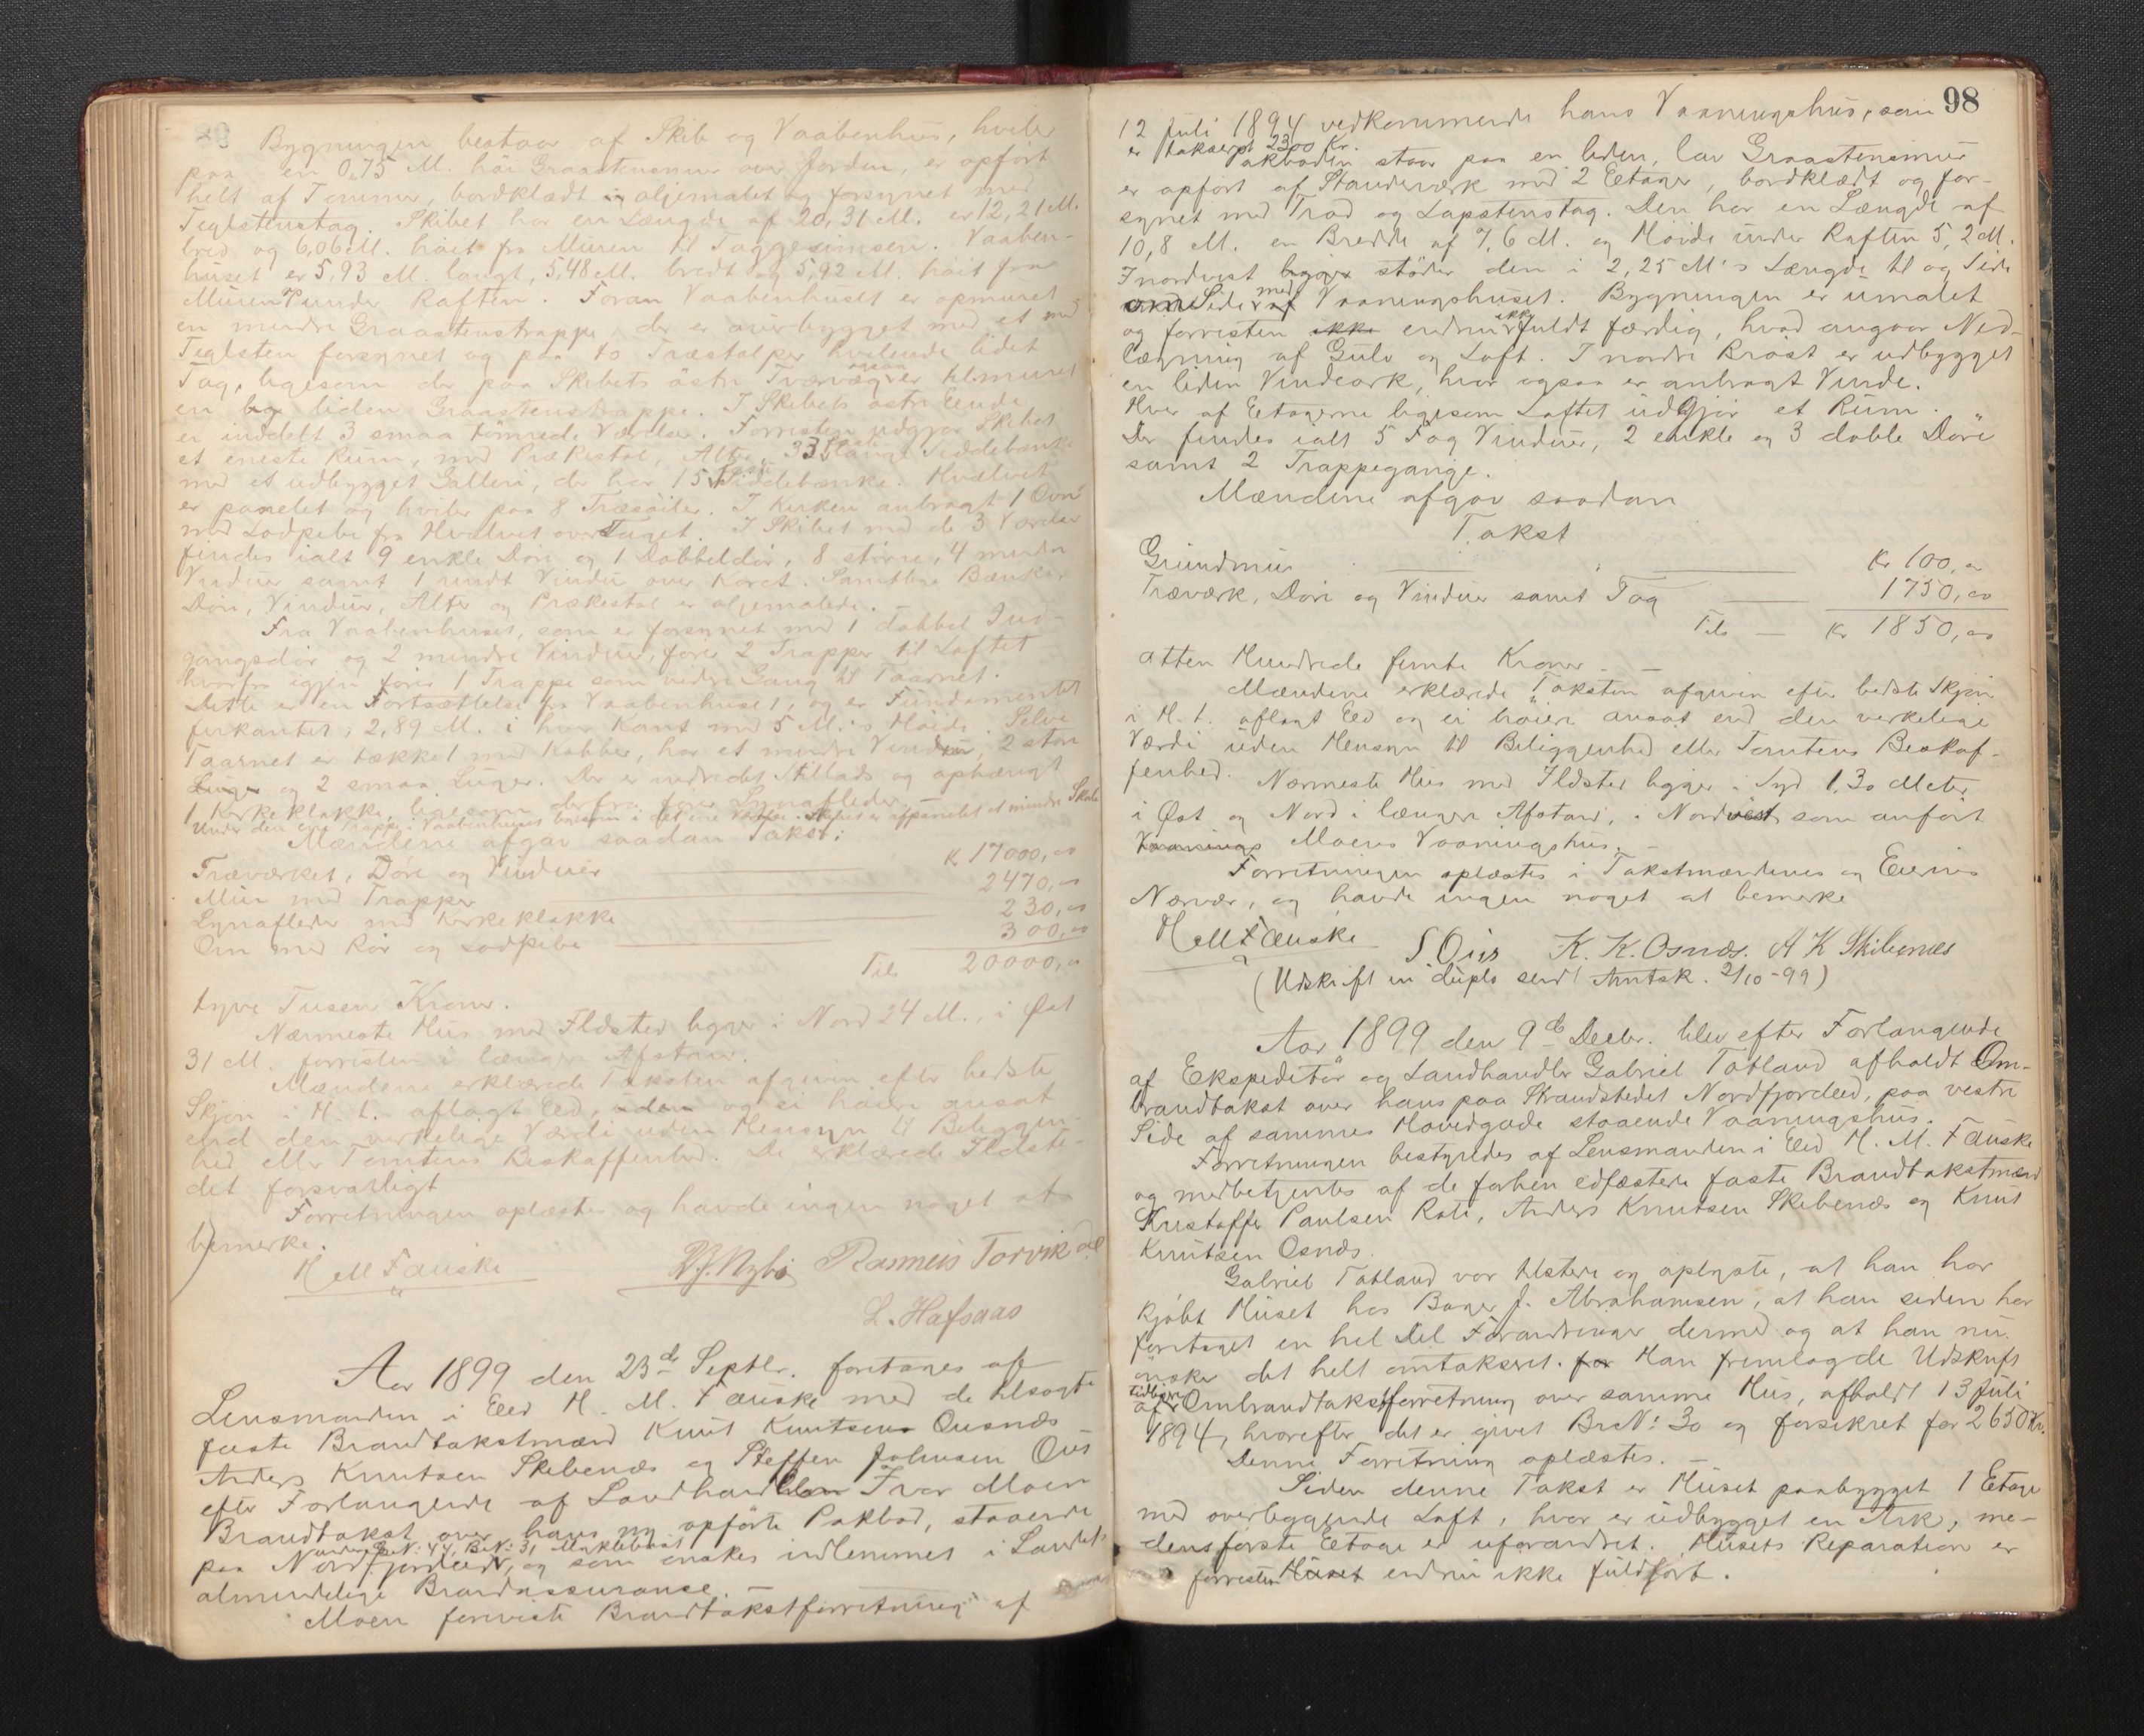 Bygningen bestaar af Skib og Vaabenhus, hviler
paa en 0,75 M. høi Graastensmur over Jorden, er opført
helt af Tømmer, bordklædt og oljemalet og forsynet med
Teglstenstag. Skibet har en Længde af 20,31 M. er 12,21 M.
bred og 6,06 M. høit fra Muren til Taggesimsen. Vaaben-
huset er 5,93 M. langt, 5,48 M. bredt og 5,92 M. høit fra
Muren under Raften. Foran Vaabenhuset er opmuret
en mindre Graastenstrappe, der er overbygget med et med
Teglsten forsynet og paa to Træstolper hvilende lidet
Tag, ligesom der paa Skibets østre Tværvæg ogsaa er tilmuret
en liden Graastenstrappe. I Skibets østre Ende
er inddelt 3 smaa tømrede Værelser. Forresten udgjør Skibet
et eneste Rum, med Prækestol, Alter, 33 lange Siddebænke
med et udbygget Galleri, der har 15 Siddebænke. Hvælvet
er panelet og hviler paa 8 Træsøiler. I Kirken anbragt 1 Ovn
med Lodpibe fra Hvælvet over Taget. I Skibet med de 3 Værelser
findes ialt 9 enkle Døre og 1 Dobbeldør, 8 større, 4 mindre
Vinduer samt 1 rundt Vindu over Koret. Samtlige Bænker
Døre, Vinduer, Alter og Prækestol er oljemalede.
Fra Vaabenhuset, som er forsynet med 1 dobbel Ind-
gangsdør og 2 mindre Vinduer, fører 2 Trapper til Loftet
hvorfra igjen fører 1 Trappe som videre Gang til Taarnet.
Dette er en Fortsættelse fra Vaabenhuset, og er Fundamentet
firkantet, 2,89 M. i hver Kant med 5 M.'s Høide. Selve
Taarnet er tækket med Kobber, har et mindre Vindu, 2 store
Luger og 2 smaa Luger. Der er indredet Stillads og ophængt
1 Kirkeklokke, ligesom derfra fører Lynafleder.
Under den ene Trappe i Vaabenhuset ligesom i det ene Værelse i Skibet er afpanelet et mindre Skab
Mændene afgav saadan Takst:
Træværket, Døre og Vinduer K 17000,00
Mur med Trapper 2470,00
Lynafleder med Kirkeklokke 230,00
Ovn med Rør og Lodpibe 300,00
Tils 20000,00
tyve Tusen Kroner.
Nærmeste Hus med Ildsted ligger i Nord 24 M., i Øst
31 M. forresten i længere Afstand.
Mændene erklærede Taksten afgiven efter bedste
Skjøn i H. t. aflagt Eed, uden og ei høiere ansat
end den virkelige Værdi uden Hensyn til Beliggen-
hed eller Tomtens Beskaffenhed. De erklærede Ildste-
det forsvarligt
Forretningen oplæstes og havde ingen noget at
bemerke.
H M Fauske Rasmus Torvik
L. Hafsaas
Aar 1899 den 23de Septbr. foretoges af
Lensmanden i Eed H. M. Fauske med de tilsagte
faste Brandtakstmænd Knut Knutsen Ousnæs
Anders Knutsen Skibenæs og Steffen Johnsen Ous
efter Forlangende af Landhandler Ivar Moen
Brandtakst over hans ny opførte Pakbod, staaende
under G.N: 44, B.N: 31 Myklebust
paa Nordfjordeid, og som ønskes indlemmet i Landets
almindelige Brandassurance.
Moen foreviste Brandtakstforretning af
98
12 Juli 1894 vedkommende hans Vaaningshus, som
er takseret 2300 Kr.
Pakboden staar paa en liden, lav Graastensmur
er opført af Standerværk med 2 Etager, bordklædt og for-
synet med Trod og Lapstenstag. Den har en Længde af
10,8 M. en Bredde af 7,6 M. og Høide under Raften 5,2 M.
I nordvest ligger støder den i 2,25 M's Længde til og Side
om Side med af Vaaningshuset. Bygningen er umalet
og forresten ikke endnu ikke fuldt færdig, hvad angaar Ned-
lægning af Gulv og Loft. I nordre Brøst er udbygget
en liden Vindeark, hvor ogsaa er anbragt Vinde.
Hver af Etagerne ligesom Loftet udgjør et Rum.
Der findes ialt 5 Fag Vinduer, 2 enkle og 3 doble Døre
samt 2 Trappegange.
Mændene afgav saadan
Takst
Grundmur Kr 100,00
Træværk, Døre og Vinduer samt Tag 1750,00
Tils — Kr 1850,00
atten Hundrede femti Kroner
Mændene erklærede Taksten afgiven efter bedste Skjøn
i H. t. aflagt Eed og ei høiere ansat end den verkelige
Værdi uden Hensyn til Beliggenhed eller Tomtens Beskaf-
fenhed. Nærmeste Hus med Ildsted ligger i Syd 1,30 Meter
i Øst og Nord i længere Afstand, i Nordvest som anført
Vaanings Moens Vaaningshus.
Forretningen oplæstes i Takstmændenes og Eierens
Nærvær, og havde ingen noget at bemerke
H M Fauske S Ous K. K. Osnæs. A K Skibenæs
(Udskrift in duplo send Amtsk. 2/10-99)
Aar 1899 den 9de Decbr. blev efter Forlangende
af Ekspeditør og Landhandler Gabriel Totland afholdt Om-
brandtakst over hans paa Strandstedet Nordfjordeid, paa vestre
Side af sammes Hovedgade staaende Vaaningshus.
Forretningen bestyredes af Lensmanden i Eid H. M. Fauske
og medbetjentes af de forhen edfæstede faste Brandtakstmænd
Kristoffer Paulsen Rote, Anders Knutsen Skibenæs og Knut
Knutsen Osnæs.
Gabriel Totland var tilstede og oplyste, at han har
kjøbt Huset hos Bager J. Abrahamsen, at han siden har
foretaget en hel Del Forandringer dermed og at han nu
ønsker det helt omtakseret. for Han fremlagde Udskrift
af tidligere Ombrandtakstforretning over samme Hus, afholdt 13 Juli
1894, hvorefter det er givet Br.N: 30 og forsikret for 2650 Kr.
Denne Forretning oplæstes.
Siden denne Takst er Huset paabygget 1 Etage
med overliggende Loft, hvor er udbygget en Ark, me-
dens første Etage er uforandret. Husets Reparation er
forresten Huset endnu ikke fuldført.